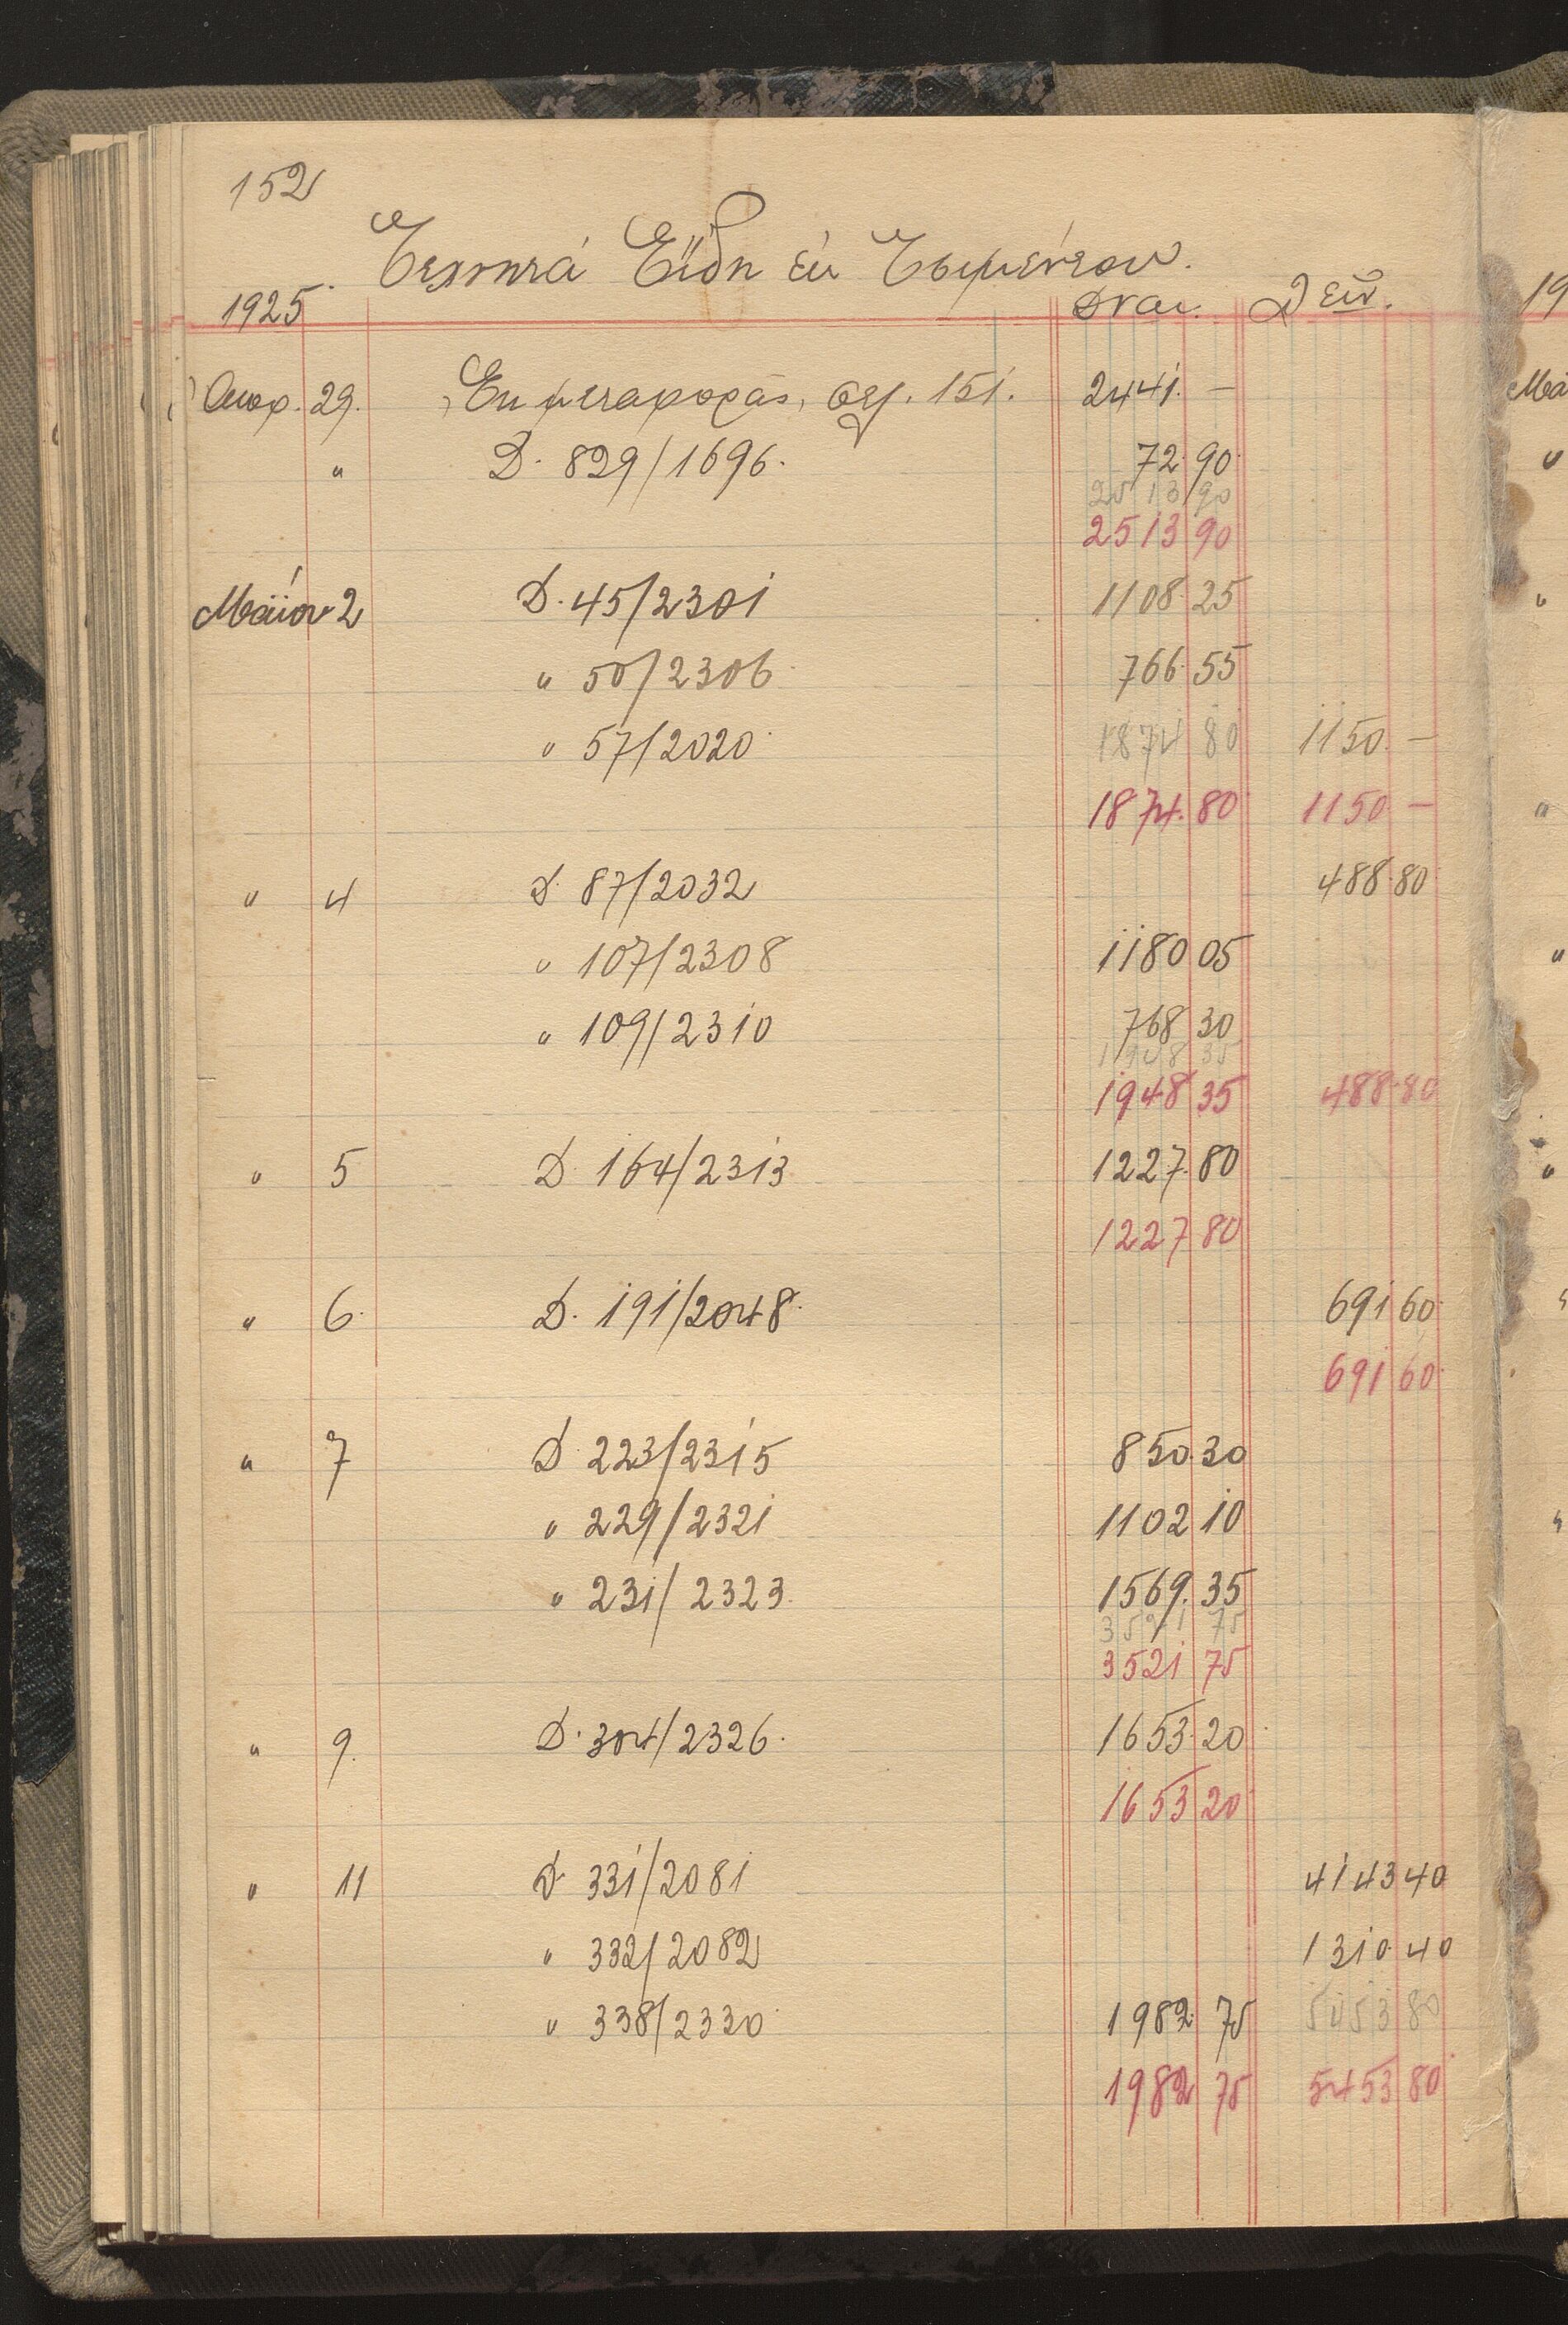 152
Τεχνητά Είδη εκ Τσιμέντου.
1925 Δραχ. Δρχ.
Απρ. 29. Εκ μεταφοράς, σελ. 151. 2441. —
" D. 829/1696. 72.90
2513 90
2513 90
Μαΐου 2 D. 45/2301 1108.25
" 50/2306 766.55
" 57/2020 1874 80 1150. —
1874.80 1150 —
" 4 D. 87/2032 488.80
" 107/2308 1180 05
" 109/2310 768 30
1948 35
1948 35 488.80
" 5 D. 164/2313 1227.80
1227 80
" 6. D. 191/2048. 691 60
691 60
" 7 D. 223/2315 850.30
" 229/2321 1102 10
" 231/2323. 1569.35
3521 75
3521 75
" 9. D. 304/2326. 1653.20
1653 20
" 11 D. 331/2081 4143 40
" 332/2082 1310.40
" 338/2330 1982 75 5453 80
1982 75 5453 80
19
Μαΐ